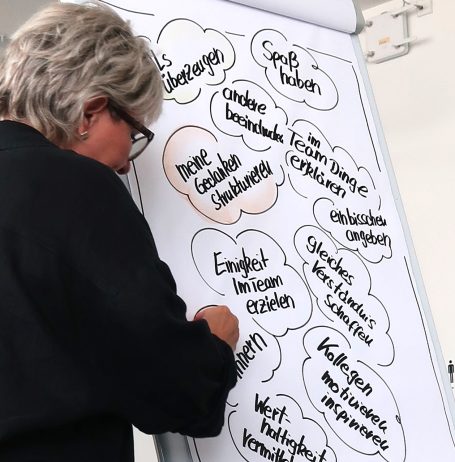 überzeugen
Spaß
haben
andere
beeindrucken
im
Team Dinge
erklären
meine
Gedanken
strukturieren
ein bisschen
angeben
Einigkeit
im Team
erzielen
gleiches
Verständnis
schaffen
Kollegen
motivieren
inspirieren
Wert-
haltigkeit